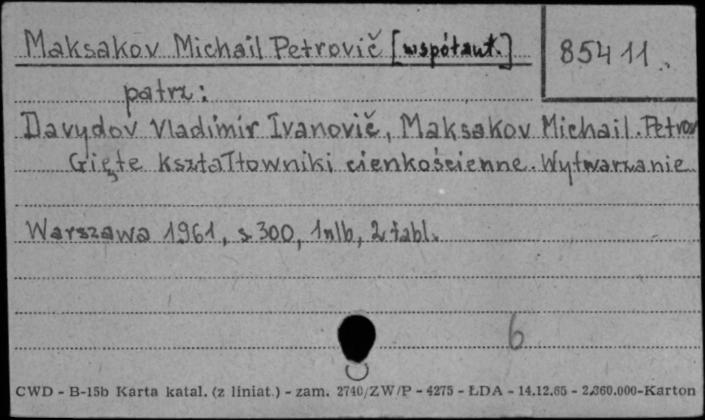 Maksakov Michail Petrovič [współaut.]
85411
patrz:
Davydov Vladimir Ivanovič, Maksakov Michail Petrov
Gięte kształtowniki cienkościenne. Wytwarzanie
Warszawa 1961, s. 300, 1 nlb, 2 tabl.
6
CWD - B-15b Karta katal. (z liniat.) - zam. 2740/ZW/P - 4275 - ŁDA - 14.12.65 - 2.360.000-Karton